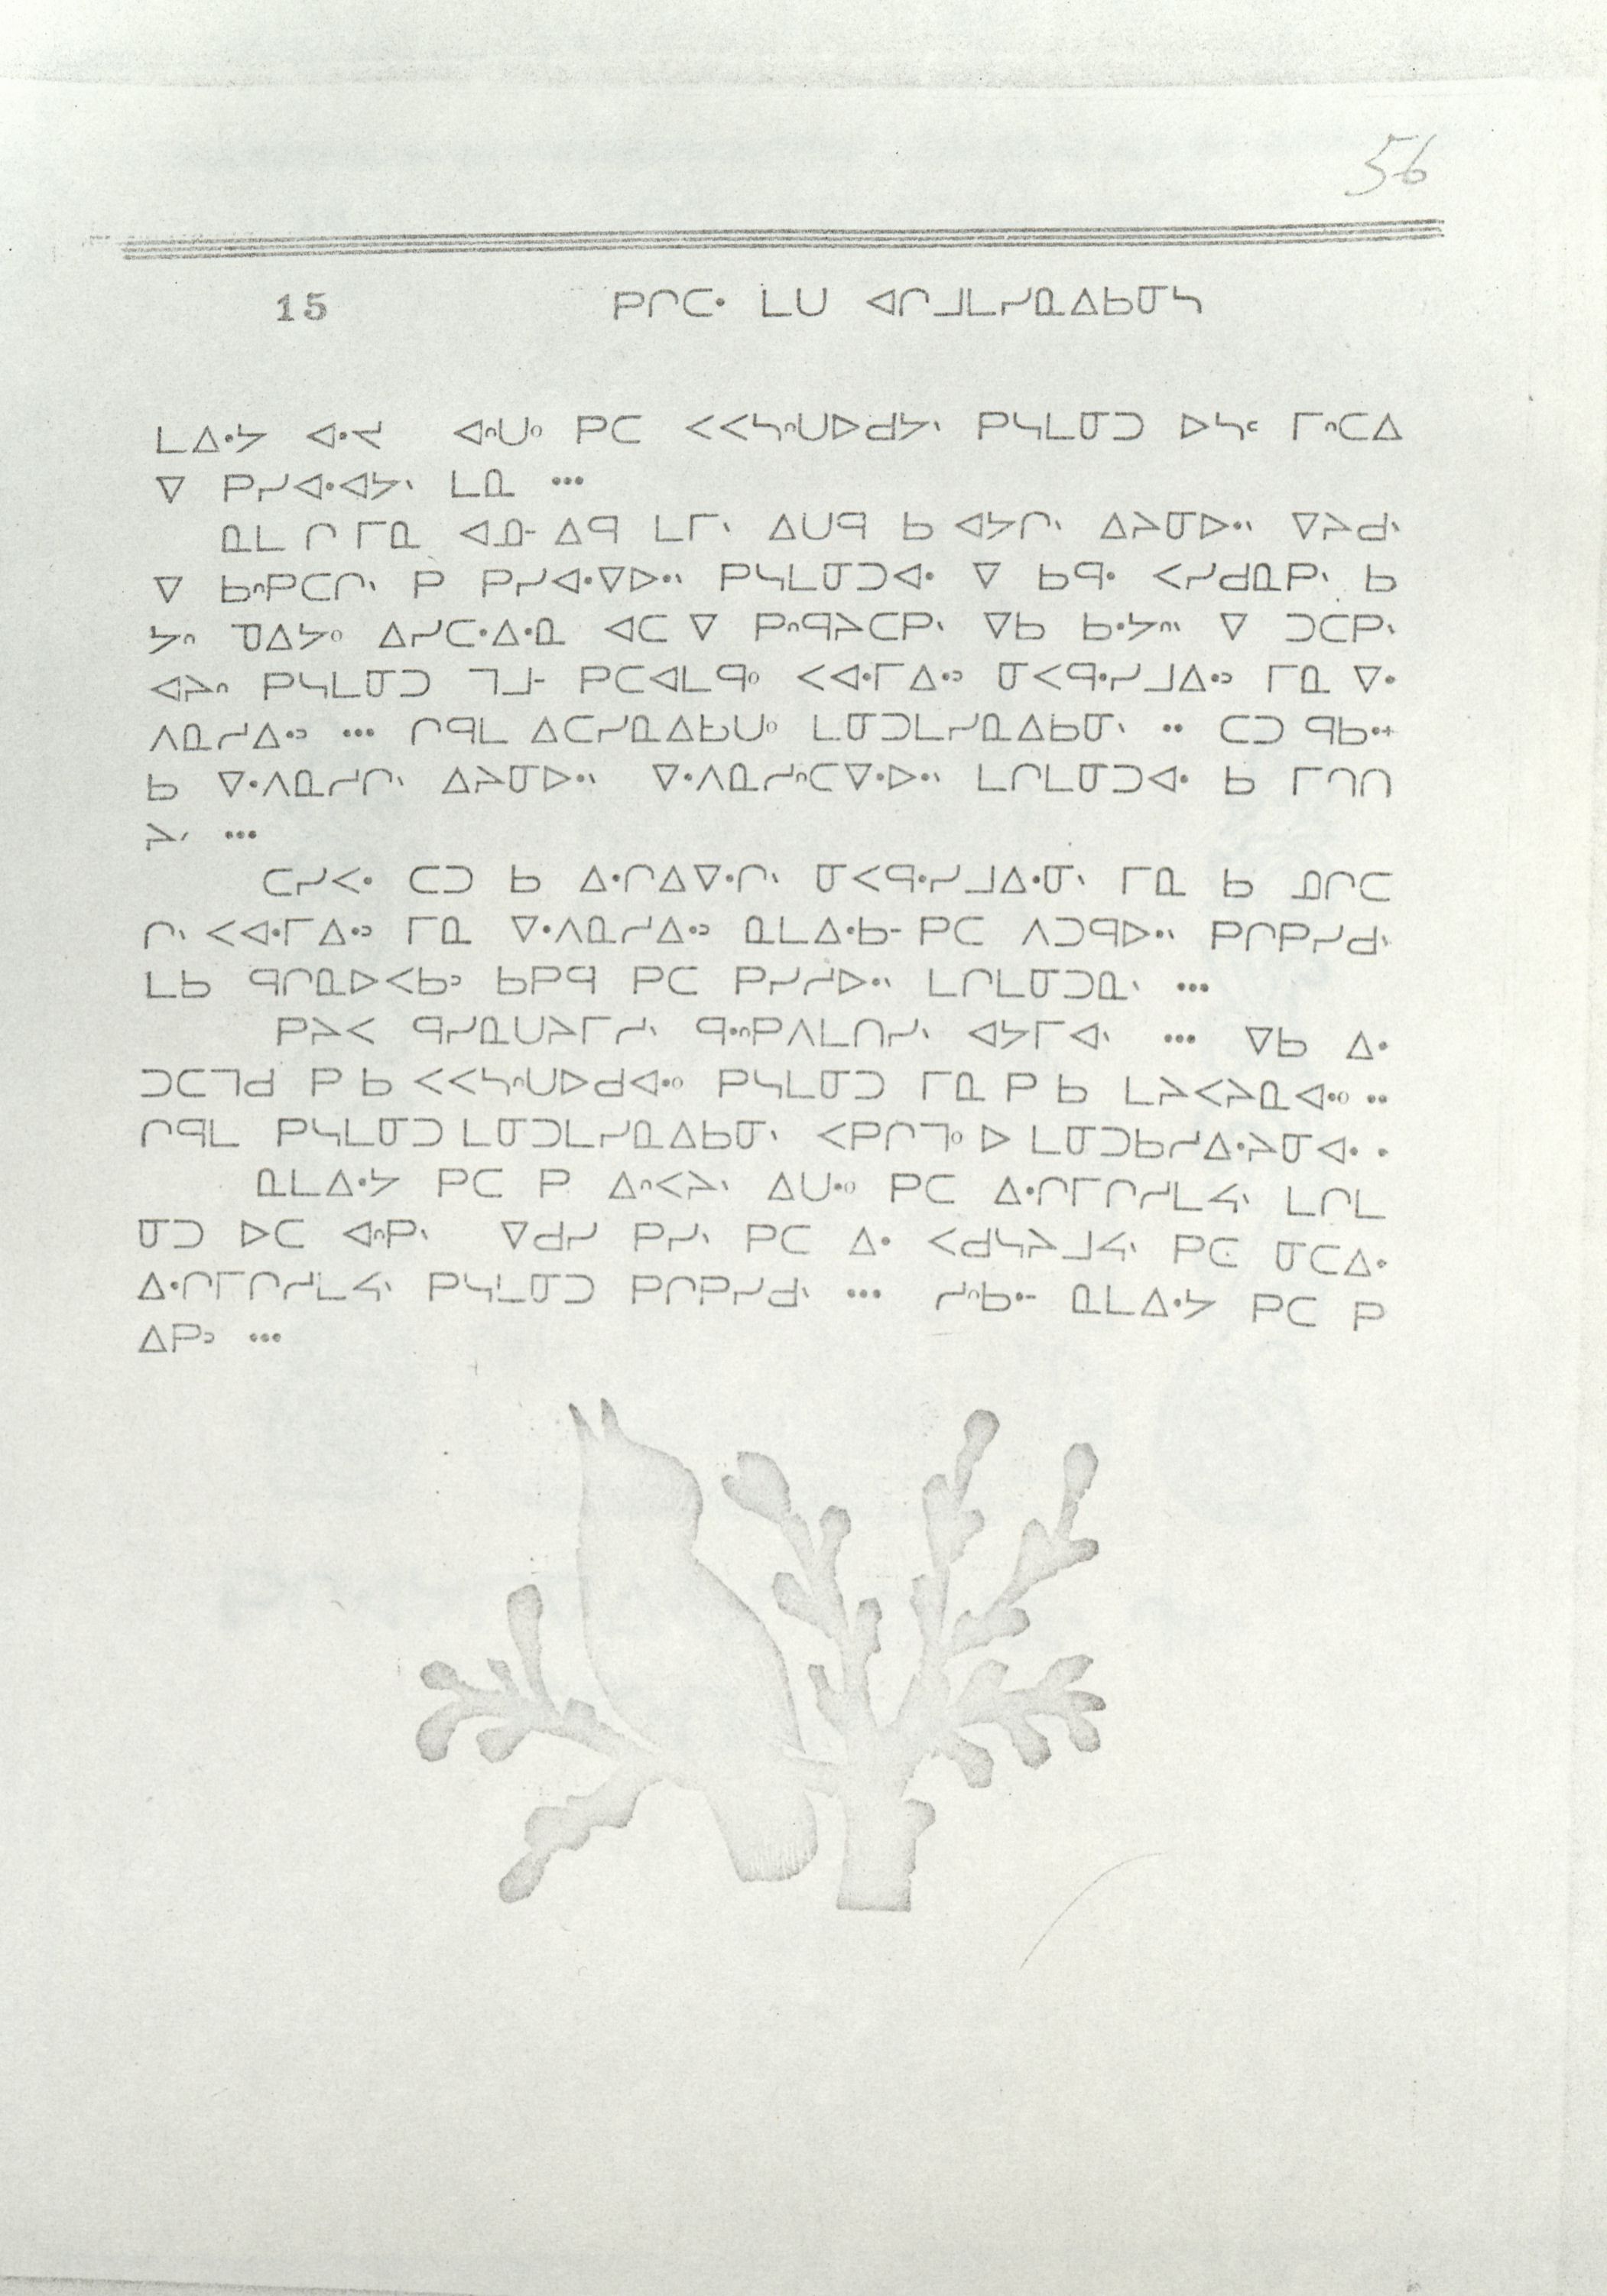 56
15 ᑭᒋᑕᐧ ᒪᑌ ᐊᒋᒧᒪᓯᓇᐃᑲᓂᓴ
ᒪᐃᐧᔭ ᐊᐧᔪ ᐊᐢᑌᐤ ᑭᑕ ᐸᐸᓴᐢᑌᐅᑯᔭᐠ ᑭᓴᒪᓂᑐ ᐅᓴᒼ ᒥᐢᑕᐃ
ᐁ ᑭᓯᐊᐧᐊᔭᐠ ᒪᓇ ...
ᓇᒪ ᒋ ᒥᓇ ᐊᓄᐨ ᐃᑫ ᒪᒥᐠ ᐃᑌᑫ ᑲ ᐊᔭᒋᐠ ᐃᔨᓂᐅᐧᐠ ᐁᔨᑯᐠ
ᐁ ᑲᐢᑭᑕᒋᐠ ᑭ ᑭᓯᐊᐧᐁᐅᐧᐠ ᑭᓴᒪᓂᑐᐊᐧ ᐁ ᑲᑫᐧ ᐸᓯᑯᓇᑭᐠ ᑲ
ᔭᐢ ᑯᐃᔭᐤ ᐃᓯᑕᐧᐃᐧᓇ ᐊᑕ ᐁ ᑭᐢᑫᔨᑕᑭᐠ ᐁᑲ ᑲᐧᔭᐢᐠ ᐁ ᑐᑕᑭᐠ
ᐊᔨᐢ ᑭᓴᒪᓂᑐ ᒣᒧᐨ ᑭᑕᐊᒪᑫᐤ ᐸᐊᐧᒥᐃᐧᐣ ᓂᐸᑫᐧᓯᒧᐃᐧᐣ ᒥᓇ ᐁᐧ
ᐱᓇᓯᐃᐧᐣ ... ᒋᑫᒪ ᐃᑕᓯᓇᐃᑲᑌᐤ ᒪᓂᑐᒪᓯᓇᐃᑲᓂᐠ .. ᑕᑐ ᑫᑲᐧᕀ
ᑲ ᐁᐧᐱᓇᓯᒋᐠ ᐃᔨᓂᐅᐧᐠ ᐁᐧᐱᓇᓯᐢᑕᐁᐧᐅᐧᐠ ᒪᒋᒪᓂᑐᐊᐧ ᑲ ᒥᒋᑎ
ᔨᐟ ...
ᑕᓯᐸᐧ ᑕᑐ ᑲ ᐃᐧᒋᐃᐁᐧᒋᐠ ᓂᐸᑫᐧᓯᒧᐃᐧᓂᐠ ᒥᓇ ᑲ ᓄᒋᑕ
ᒋᐠ ᐸᐊᐧᒥᐃᐧᐣ ᒥᓇ ᐁᐧᐱᓇᓯᐃᐧᐣ ᓇᒪᐃᐧᑲᐨ ᑭᑕ ᐱᑐᑫᐅᐧᐠ ᑭᒋᑭᓯᑯᐠ
ᒪᑲ ᑫᒋᓇᐅᐸᑲᐣ ᑲᑭᑫ ᑭᑕ ᑭᓯᓱᐅᐧᐠ ᒪᒋᒪᓂᑐᓇᐠ ...
ᑭᔨᐸ ᑫᓯᓇᑌᔨᒥᓱᐠ ᑫᐧᐢᑭᐱᒪᑎᓯᐠ ᐊᔭᒥᐊᐠ ... ᐁᑲ ᐃᐧ
ᑐᑕᒣᑯ ᑭ ᑲ ᐸᐸᓴᐢᑌᐅᑯᐊᐧᐤ ᑭᓴᒪᓂᑐ ᒥᓇ ᑭ ᑲ ᒪᔨᐸᔨᓇᐊᐧᐤ ..
ᒋᑫᒪ ᑭᓴᒪᓂᑐ ᒪᓂᑐᒪᓯᓇᐃᑲᓂᐠ ᐸᑭᒋᒣᐤ ᐅ ᒪᓂᑐᑲᓱᐃᐧᔨᓂᐊᐧ .
ᓇᒪᐃᐧᔭ ᑭᑕ ᑭ ᐃᐢᐸᔨᐠ ᐃᑌᐧᐤ ᑭᑕ ᐃᐧᒋᒥᒋᓱᒪᔪᐠ ᒪᒋᒪ
ᓂᑐ ᐅᑕ ᐊᐢᑭᐠ ᐁᑯᓯ ᑭᓯᐠ ᑭᑕ ᐃᐧ ᐸᑯᓴᔨᒧᔪᐠ ᑭᑕ ᓂᑕᐃᐧ
ᐃᐧᒋᒥᒋᓱᒪᔪᐠ ᑭᓴᒪᓂᑐ ᑭᒋᑭᓯᑯᐠ ... ᓯᐢᑲᐧᐨ ᓇᒪᐃᐧᔭ ᑭᑕ ᑭ
ᐃᑭᐣ ...